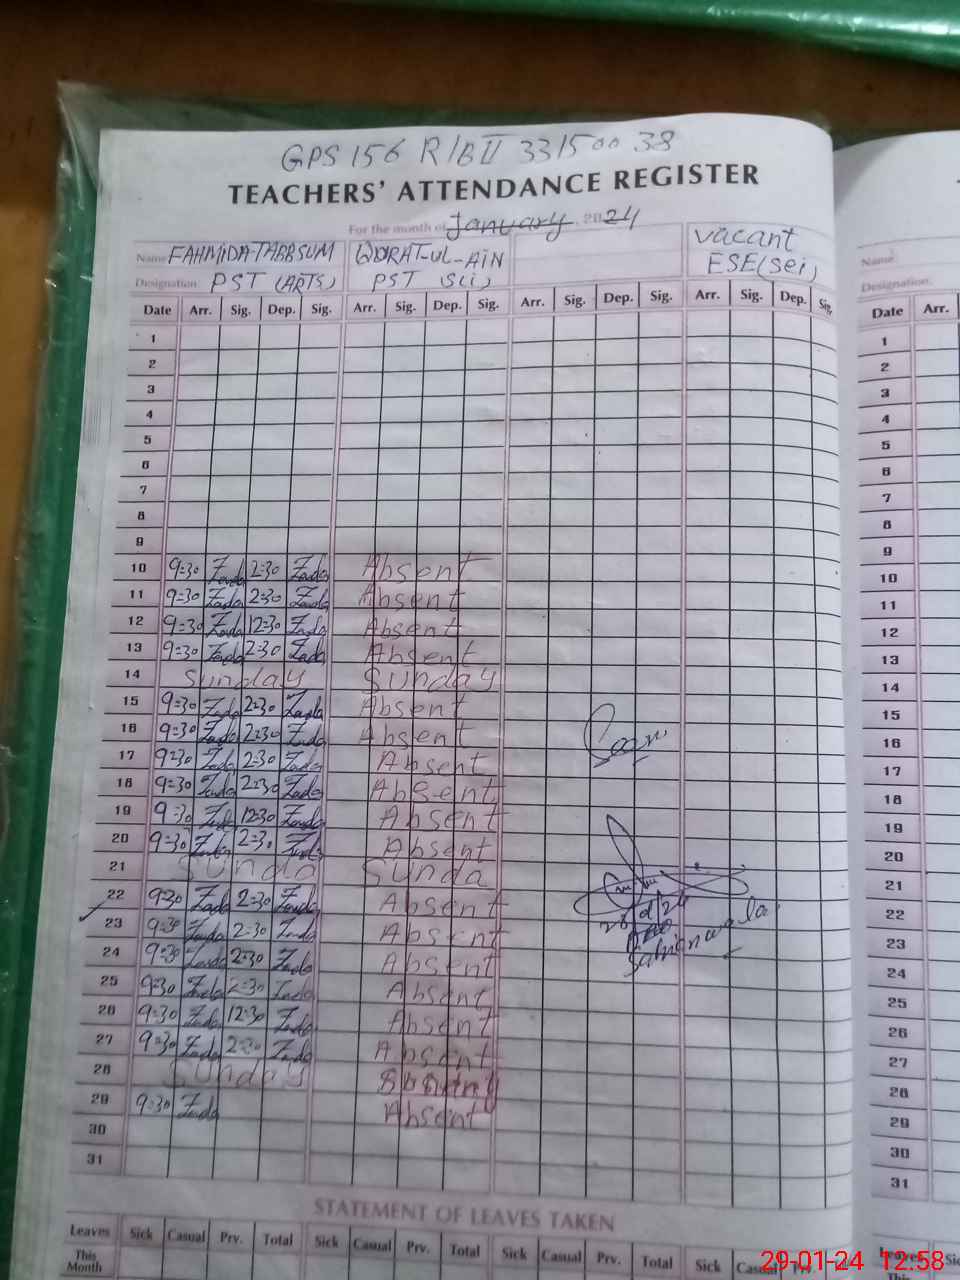 GPS 156 R/B II 331500 38
TEACHERS' ATTENDANCE REGISTER
For the month of January, 2024
Name FAHMIDA-TABBSUM QURAT-UL-AIN vacant Name:
Designation: PST (ARTS) PST (Sci) ESE(Sci) Designation:
Date Arr. Sig. Dep. Sig. Arr. Sig. Dep. Sig. Arr. Sig. Dep. Sig. Arr. Sig. Dep. Sig. Date Arr.
1 1
2 2
3 3
4 4
5 5
6 6
7 7
8 8
9 9
10 9=30 2=30 Absent 10
11 9=30 2=30 Absent 11
12 9=30 12=30 Absent 12
13 9=30 2=30 Absent 13
14 Sunday Sunday 14
15 9=30 2=30 Absent 15
16 9=30 2=30 Absent 16
17 9=30 2=30 Absent 17
18 9=30 2=30 Absent 18
19 9=30 12=30 Absent 19
20 9=30 2=30 Absent 20
21 Sunda Sunda 21
22 9=30 2=30 Absent 22
23 9=30 2=30 Absent 23
24 9=30 2=30 Absent 24
25 9=30 2=30 Absent 25
26 9=30 12=30 Absent 26
27 9=30 2=30 Absent 27
28 Sunday 28
29 9=30 Absent 29
30 30
31 31
STATEMENT OF LEAVES TAKEN
Leaves Sick Casual Prv. Total Sick Casual Prv. Total Sick Casual Prv. Total Sick Casual Prv. Leaves
This Month
29-01-24 12:58